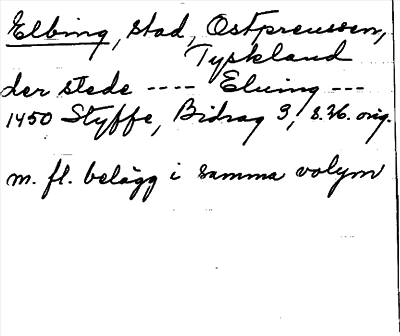 Elbing, stad, Ostpreussen,
Tyskland
der stede ---- Eluing ---
1450 Styffe, Bidrag 3, s. 26. orig.
m. fl. belägg i samma volym